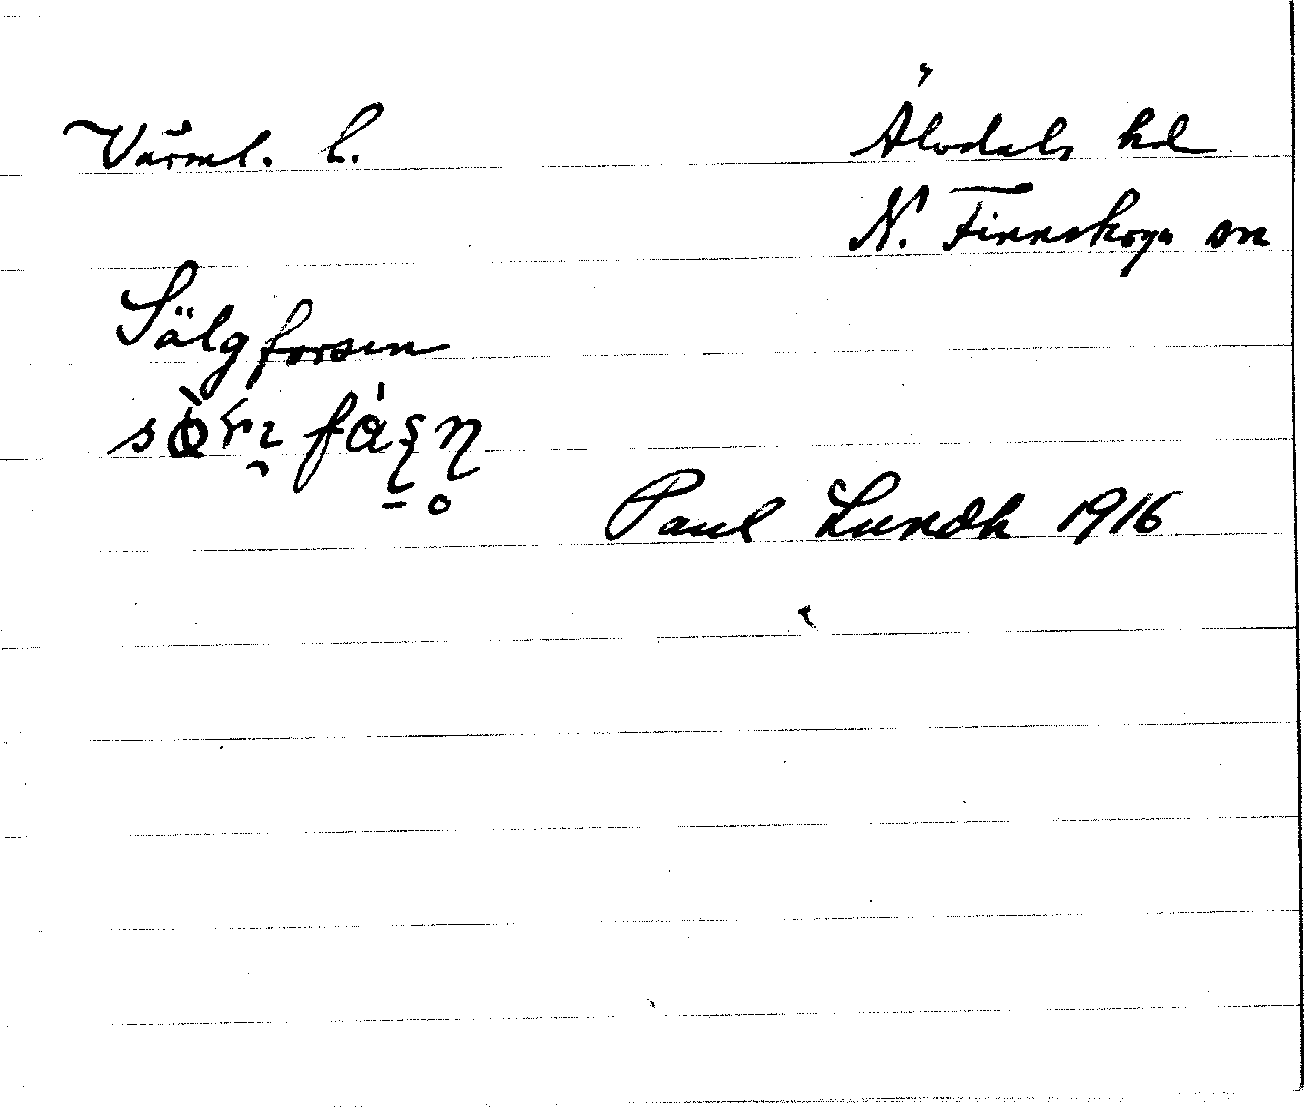 Värml. l.
Älvdals hd
N. Finnskoga sn
Sälgforsen
Paul Lundh 1916